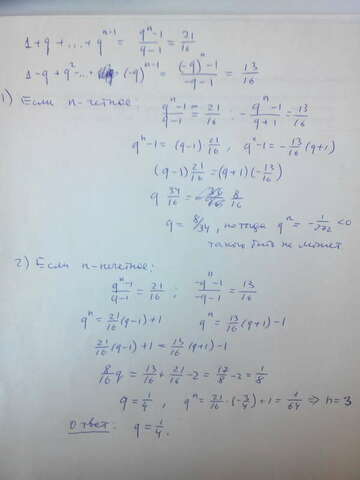 1+q+...+q^{n-1} = \frac{q^n-1}{q-1} = \frac{21}{16}
1-q+q^2-...+(-q)^{n-1} = \frac{(-q)^n-1}{-q-1} = \frac{13}{16}
1) Если n-четное: \frac{q^n-1}{q-1} = \frac{21}{16}; -\frac{q^n-1}{q+1} = \frac{13}{16}
q^n-1 = (q-1)\frac{21}{16}, q^n-1 = -\frac{13}{16}(q+1)
(q-1)\frac{21}{16} = (q+1)(-\frac{13}{16})
q \frac{34}{16} = \frac{8}{16}
q = 8/34, но тогда q^n = -\frac{1}{272} < 0
такого быть не может
2) Если n-нечетное:
\frac{q^n-1}{q-1} = \frac{21}{16}; \frac{-q^n-1}{-q-1} = \frac{13}{16}
q^n = \frac{21}{16}(q-1)+1 q^n = \frac{13}{16}(q+1)-1
\frac{21}{16}(q-1)+1 = \frac{13}{16}(q+1)-1
\frac{8}{16}q = \frac{13}{16}+\frac{21}{16}-2 = \frac{17}{8}-2 = \frac{1}{8}
q = \frac{1}{4}, q^n = \frac{21}{16}\cdot(-\frac{3}{4})+1 = \frac{1}{64} => n=3
Ответ: q = \frac{1}{4}.